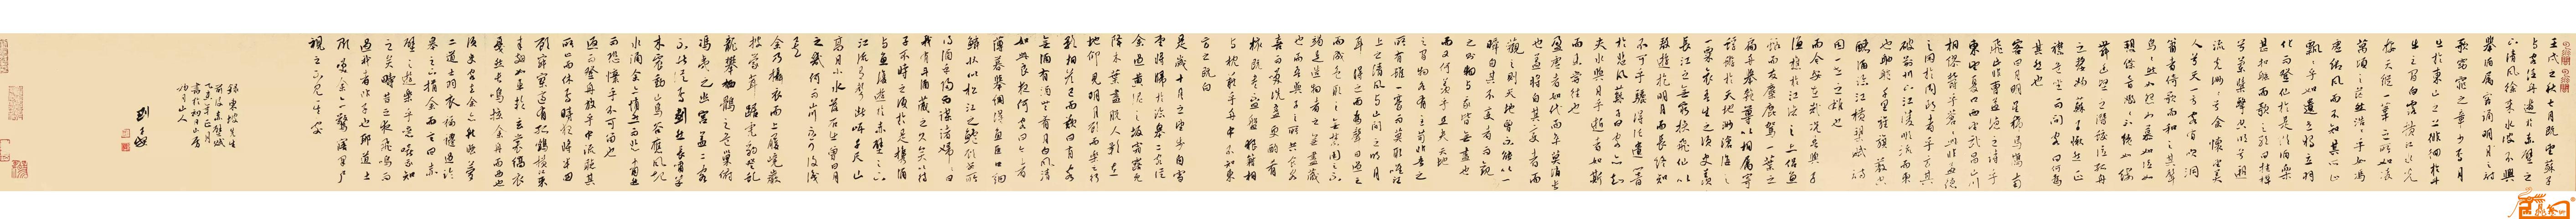 壬戌之秋七月既望蘇子
與客泛舟遊於赤壁之
下清風徐來水波不興
舉酒屬客誦明月之詩
歌窈窕之章少焉月
出於東山之上徘徊於斗
牛之間白露橫江水光
接天縱一葦之所如凌
萬頃之茫然浩浩乎如馮
虛御風而不知其所止
飄飄乎如遺世獨立羽
化而登仙於是飲酒樂
甚扣舷而歌之歌曰桂棹
兮蘭槳擊空明兮溯
流光渺渺兮余懷望美
人兮天一方客有吹洞
簫者倚歌而和之其聲
嗚嗚然如怨如慕如泣如
訴餘音嫋嫋不絕如縷
舞幽壑之潛蛟泣孤舟
之嫠婦蘇子愀然正
襟危坐而問客曰何為
其然也
客曰月明星稀烏鵲南
飛此非曹孟德之詩乎
東望夏口西望武昌山川
相繆鬱乎蒼蒼此非孟德
之困於周郎者乎方其
破荊州下江陵順流而東
也舳艫千里旌旗蔽空
釃酒臨江橫槊賦詩
固一世之雄也
而今安在哉況吾與子
漁樵於江渚之上侶魚
蝦而友麋鹿駕一葉之
扁舟舉匏樽以相屬寄
蜉蝣於天地渺滄海之
一粟哀吾生之須臾羨
長江之無窮挾飛仙以
遨遊抱明月而長終知
不可乎驟得託遺響
於悲風蘇子曰客亦知
夫水與月乎逝者如斯
而未嘗往也
盈虛者如彼而卒莫消長
也蓋將自其變者而
觀之則天地曾不能以一
瞬自其不變者而觀
之則物與我皆無盡也
而又何羨乎且夫天地
之間物各有主苟非吾之
所有雖一毫而莫取惟江
上之清風與山間之明月
耳得之而為聲目遇之
而成色取之無禁用之不
竭是造物者之無盡藏
也而吾與子之所共食客
喜而笑洗盞更酌肴
核既盡杯盤狼籍相
與枕藉乎舟中不知東
方之既白
是歲十月之望步自雪
堂將歸於臨皋二客從
余過黃泥之坂霜露既
降木葉盡脫人影在
地仰見明月顧而樂之行
歌相答已而歎曰有客
無酒有酒無肴月白風清
如此良夜何客曰今者
薄暮舉網得魚巨口細
鱗狀似松江之鱸顧安所
得酒乎歸而謀諸婦婦曰
我有斗酒藏之久矣以待
子不時之須於是攜酒
與魚復遊於赤壁之下
江流有聲斷岸千尺山
高月小水落石出曾日月
之幾何而江山不可復識
矣
余乃攝衣而上履巉巖
披蒙茸踞虎豹登虬
龍攀棲鶻之危巢俯
馮夷之幽宮蓋二客
不能從焉劃然長嘯草
木震動山鳴谷應風起
水涌余亦悄然而悲肅然
而恐懍乎其不可留也
返而登舟放乎中流聽其
所止而休焉時夜將半四
顧寂寥適有孤鶴橫江東
來翅如車輪玄裳縞衣
戛然長鳴掠余舟而西也
須臾客去余亦就睡夢
二道士羽衣蹁躚過臨
皋之下揖余而言曰赤
壁之遊樂乎
過我者非子也耶道士
顧笑余亦驚寤開戶
視之不見其處
錄東坡先生
前後赤壁賦